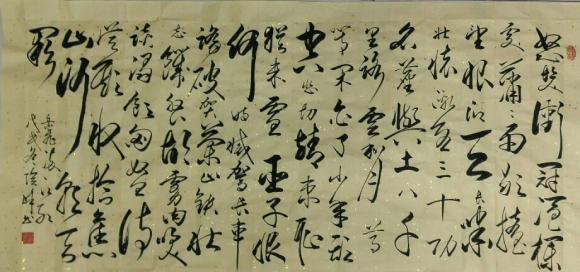 怒髮衝冠憑欄
處瀟瀟雨歇擡
望眼仰天長嘯
壯懷激烈三十功
名塵與土八千
里路雲和月莫
等閒白了少年頭
空悲切靖康恥
猶未雪臣子恨
何時滅駕長車
踏破賀蘭山缺壯
志饑餐胡虜肉笑
談渴飲匈奴血待
從頭收拾舊
山河朝天
闕
岳飛滿江紅
書